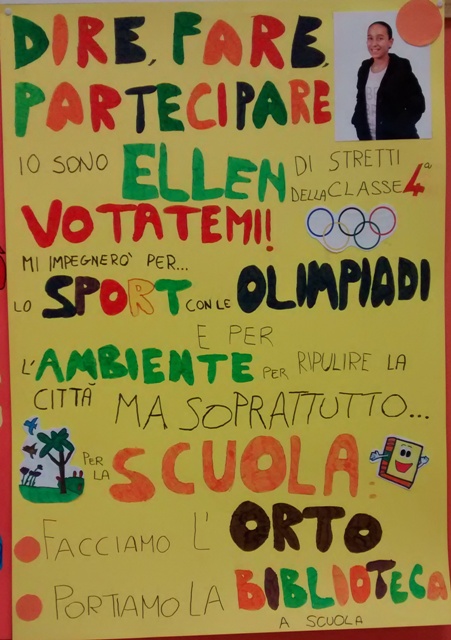 DIRE, FARE,
PARTECIPARE
IO SONO ELLEN DI STRETTI
DELLA CLASSE 4ª
VOTATEMI!
MI IMPEGNERO' PER...
LO SPORT CON LE OLIMPIADI
E PER
L'AMBIENTE PER RIPULIRE LA
CITTÀ MA SOPRATTUTTO...
PER LA SCUOLA:
FACCIAMO L'ORTO
PORTIAMO LA BIBLIOTECA
A SCUOLA